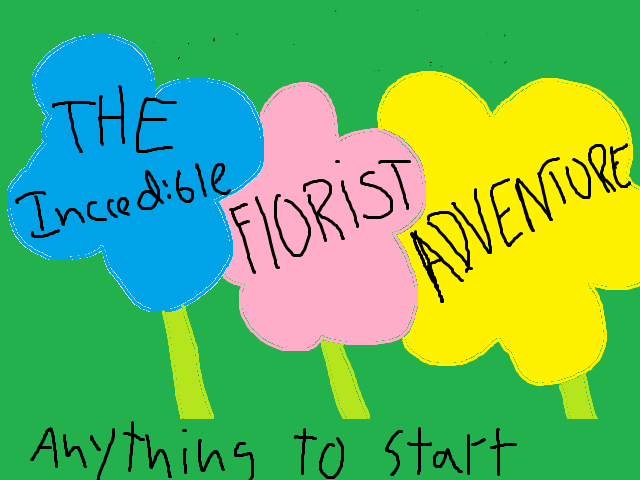 THE
Incredible
FlORiST
ADVENTURE
Anything to Start